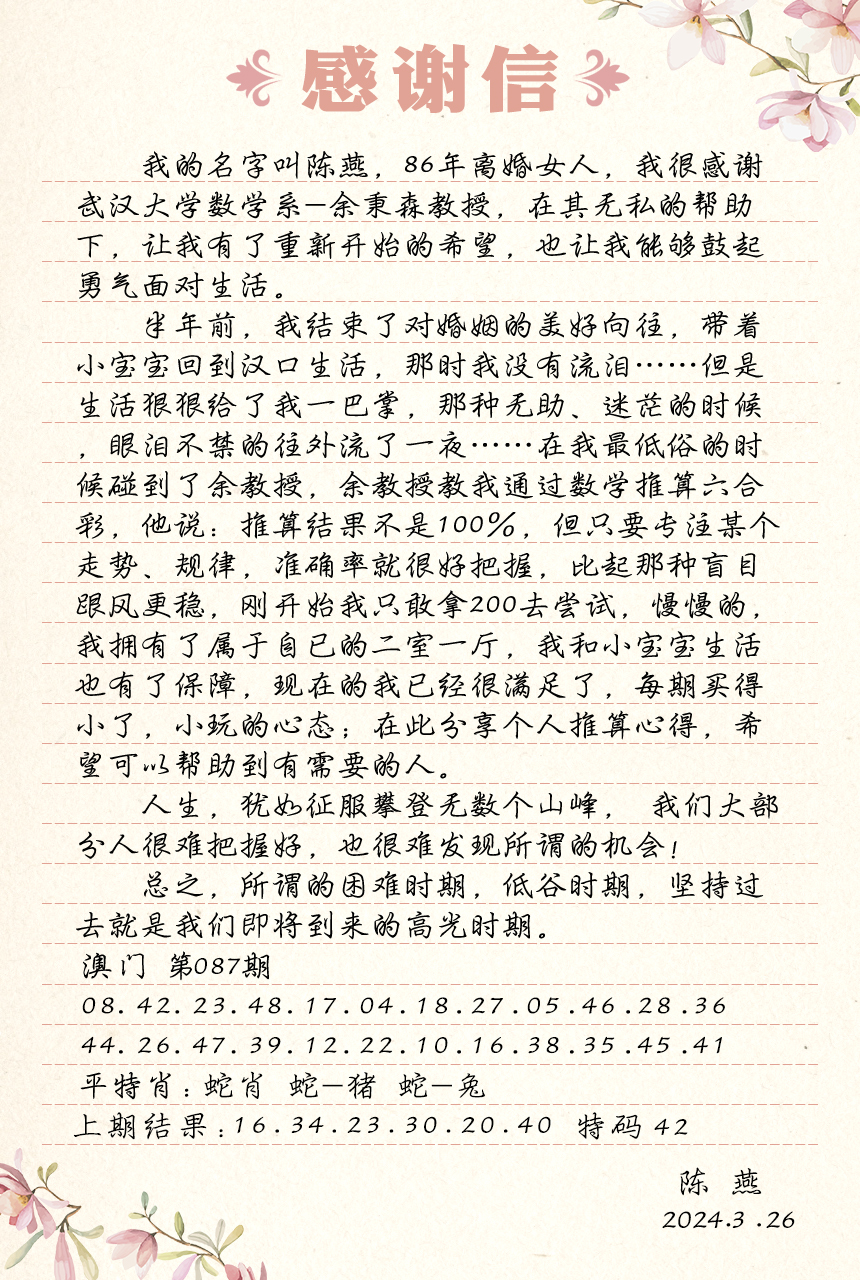 感谢信
我的名字叫陈燕，86年离婚女人，我很感谢
武汉大学数学系—余秉森教授，在其无私的帮助
下，让我有了重新开始的希望，也让我能够鼓起
勇气面对生活。
半年前，我结束了对婚姻的美好向往，带着
小宝宝回到汉口生活，那时我没有流泪……但是
生活狠狠给了我一巴掌，那种无助、迷茫的时候
，眼泪不禁的往外流了一夜……在我最低俗的时
候碰到了余教授，余教授教我通过数学推算六合
彩，他说：推算结果不是100%，但只要专注某个
走势、规律，准确率就很好把握，比起那种盲目
跟风更稳，刚开始我只敢拿200去尝试，慢慢的，
我拥有了属于自己的二室一厅，我和小宝宝生活
也有了保障，现在的我已经很满足了，每期买得
小了，小玩的心态；在此分享个人推算心得，希
望可以帮助到有需要的人。
人生，犹如征服攀登无数个山峰， 我们大部
分人很难把握好，也很难发现所谓的机会！
总之，所谓的困难时期，低谷时期，坚持过
去就是我们即将到来的高光时期。
澳门 第087期
08.42.23.48.17.04.18.27.05.46.28.36
44.26.47.39.12.22.10.16.38.35.45.41
平特肖：蛇肖 蛇—猪 蛇—兔
上期结果：16.34.23.30.20.40 特码 42
陈 燕
2024.3.26